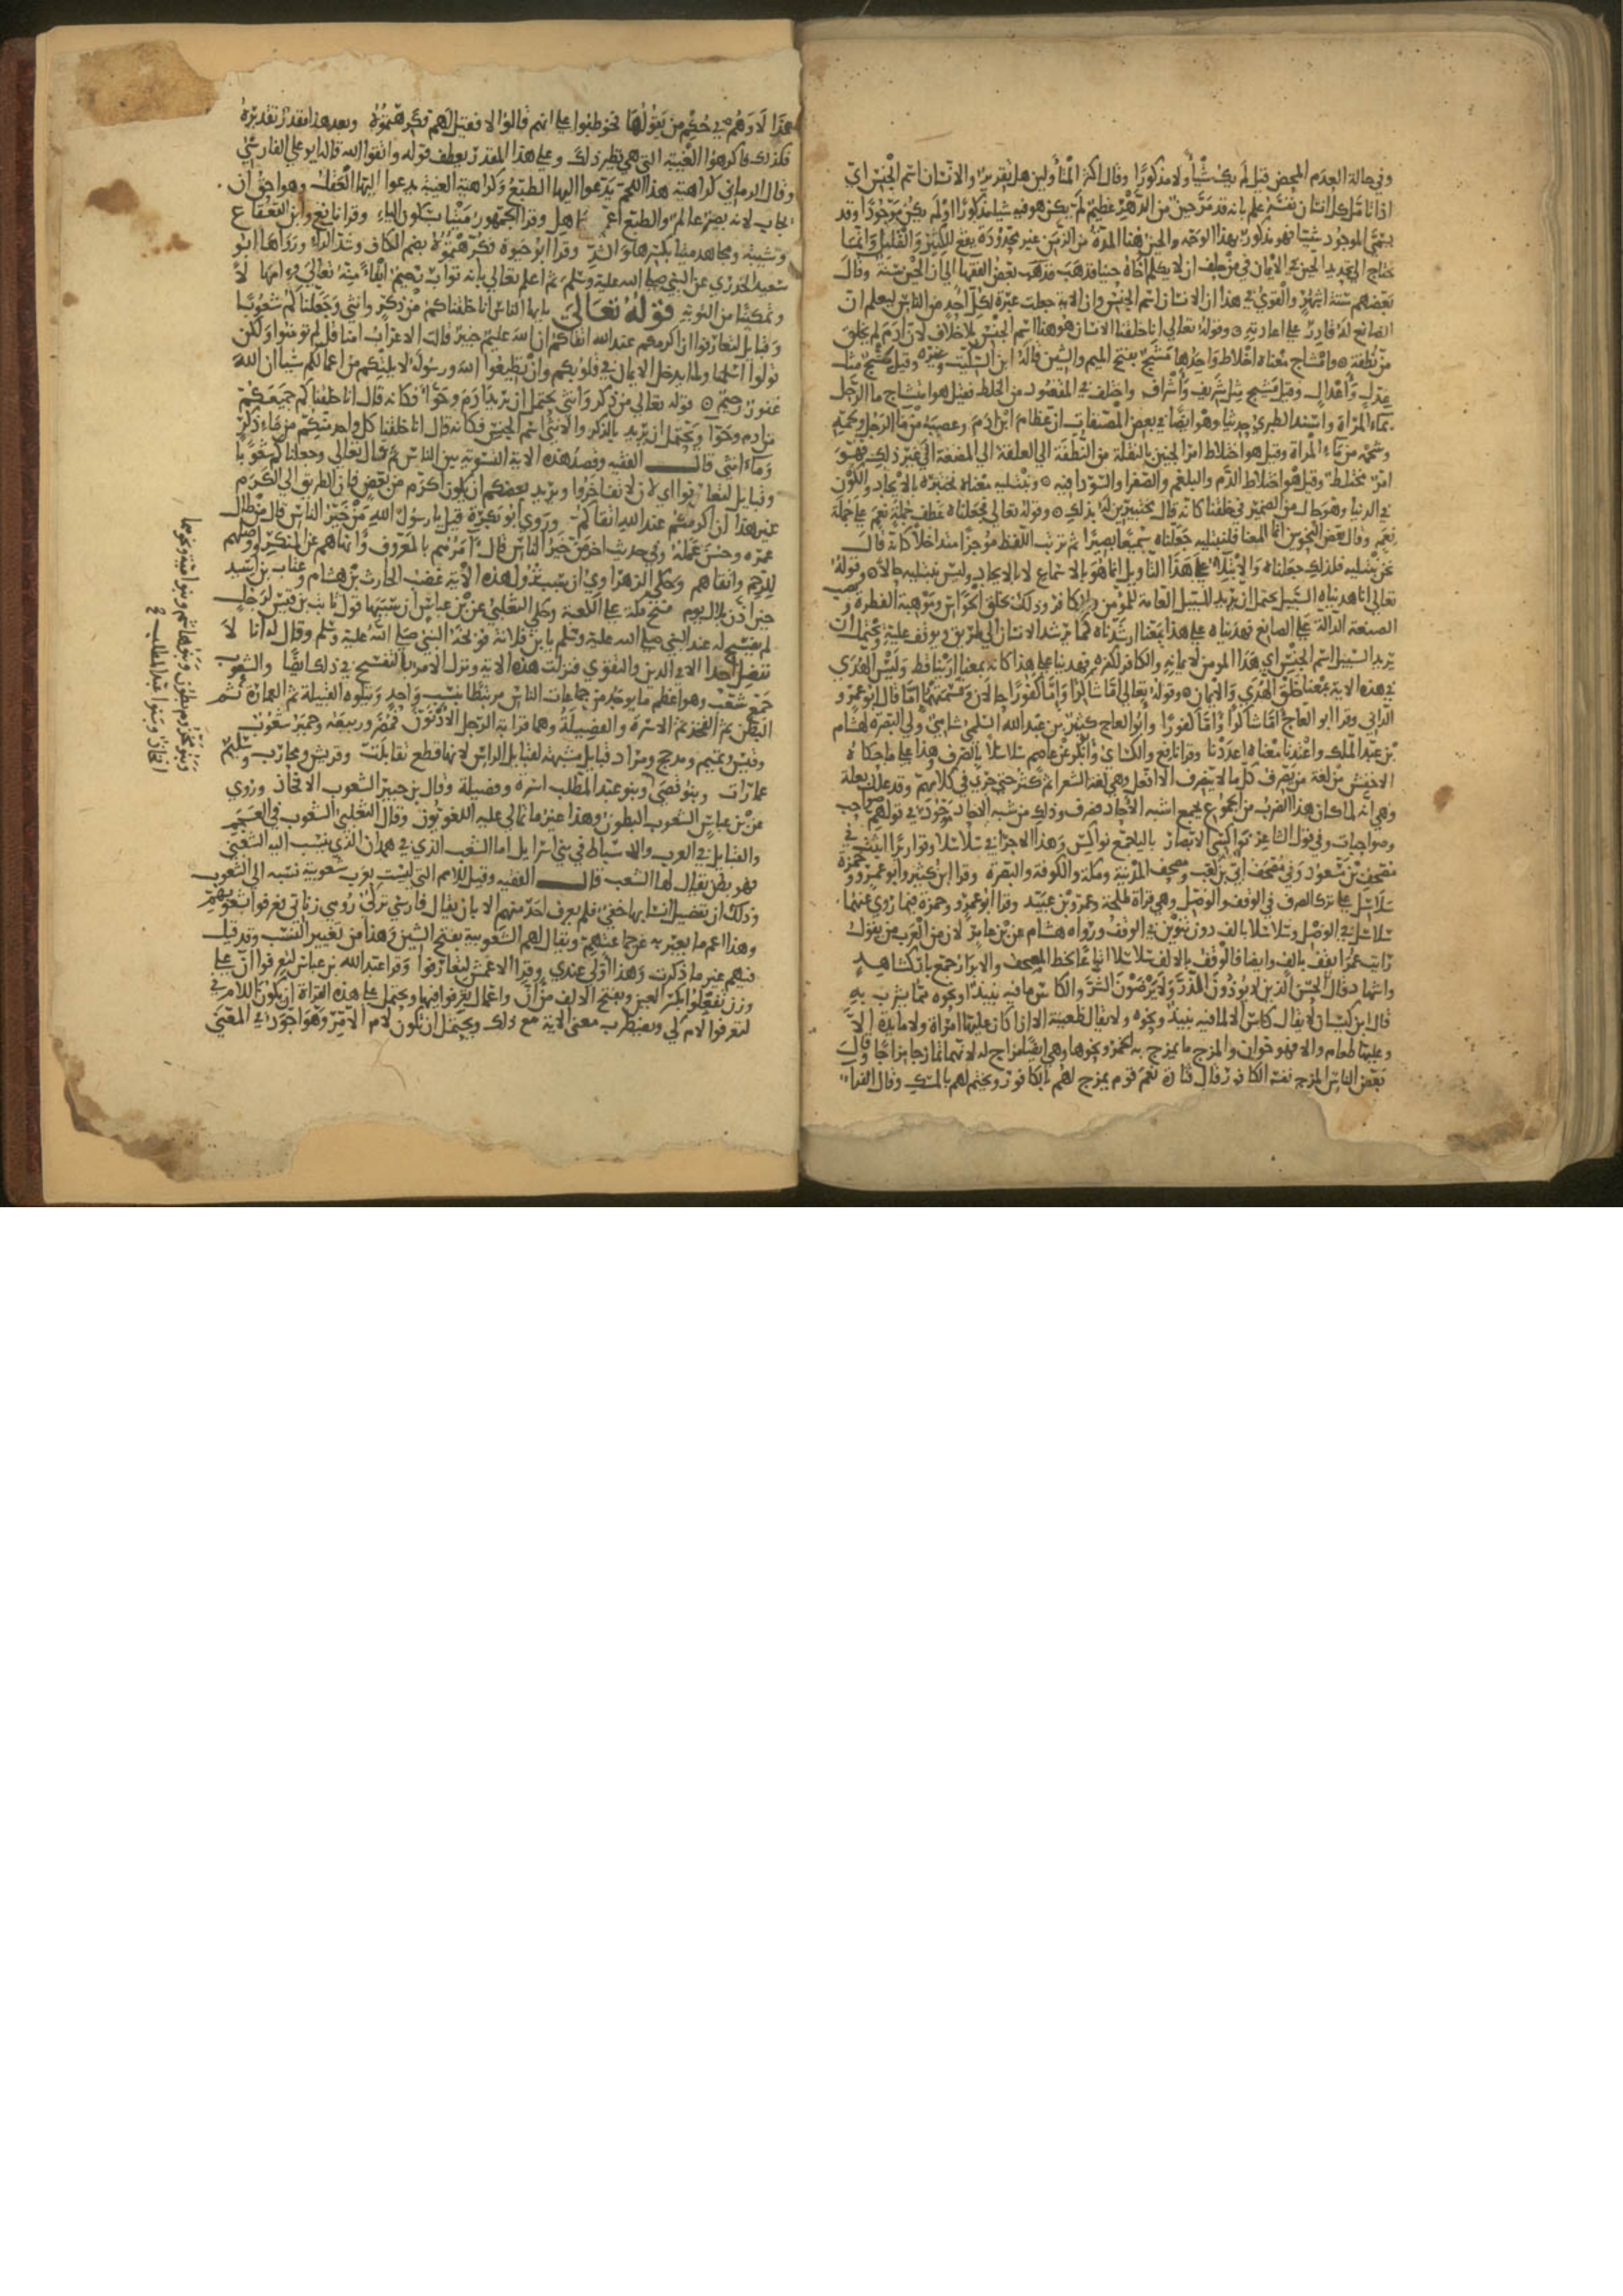 وفي حالة العدم المحض قبل لم يكن شيا ولا مذكورا وقال اكثر المتاولين هل تقرير والانسان اسم الجنس اي
اذا تامل كل انسان نفسه علم بانه قد مر حين من الدهر عظيم لم يكن هو فيه شيا مذكورا او لم يكن موجودا وقد
يسمى الموجود شيا فهو مذكور بهذا الوجه والحين هنا المدة من الزمن غير محدودة يقع للكثير والقليل وانما
يحتاج الى تحديد الحين في الايمان في من حلف ان لا يكلم اخاه حينا فذهب بعض الفقها الى ان الحين سنة وقال
بعضهم ستة اشهر والقوي في هذا ان الانسان اسم الجنس وان الاية جعلت عبرة لكل احد من الناس ليعلم ان
الصانع له قادر على اعادته ۞ وقوله تعالى انا خلقنا الانسان هو هنا اسم الجنس بلا خلاف لان ادم لم يخلق
من نطفة ۞ وامشاج معناه اخلاط واحدها مشج بفتح الميم والشين قاله ابن السكيت وغيره وقيل مشج مثل
عدل واعدال وقيل مشيج مثل شريف واشراف واختلف في المقصود من الخلط فقيل هو امتشاج ما الرجل
بماء المراة واسند الطبري حديثا وهو ايضا في بعض المصنفات ان عظام ابن ادم وعصبه من ما الرجل ولحمه
وشحمه من ماء المراة وقيل هو اختلاط امر الجنين بالنقلة من النطفة الى العلقة الى المضغة الى غير ذلك فهو
امر مختلط وقيل هو اختلاط الدم والبلغم والصفرا والسودا فيه ۞ ونبتليه معناه نختبره بالايجاد والكون
في الدنيا وهو حال من الضمير في خلقنا كانه قال مختبرين له بذلك ۞ وقوله تعالى فجعلناه عطف جملة نعم على جملة
نعم وقال بعض النحويين انما المعنا فلنبتليه جعلناه سميعا بصيرا ثم ترتب اللفظ موجزا متداخلا كانه قال
نحن نبتليه فلذلك جعلناه والابتلا على هذا التاويل انما هو بالاستماع لا بالايجاد وليس نبتليه حالا ۞ وقوله
تعالى انا هديناه السبيل يحتمل ان يريد السبيل العامة للمومن والكافر وذلك بخلق الحواس وموهبة الفطرة ونصب
الصنعة الدالة على الصانع فهديناه على هذا بمعنا ارشدناه كما يرشد الانسان الى الطريق ويوقف عليه ويحتمل ان
يريد السبيل اسم الجنس اي هدا المومن لايمانه والكافر لكفره فهديناه على هذا كانه بمعنا اريناه فقط وليس الهدي
في هذه الاية بمعنا خلق الهدي والايمان ۞ وقوله تعالى اما شاكرا واما كفورا حالان وقسمتهما اما قال ابو عمرو
الداني وقرا ابو العاج اما شاكرا واما كفورا وابو العاج كثير بن عبد الله السلمي شامي ولي البصرة لهشام
بن عبد الملك واعتدنا معناه اعددنا وقرا نافع والكساي وابو بكر عن عاصم سلاسلا بالصرف وهذا على ما حكاه
الاخفش من لغة من يصرف كل ما لا ينصرف الا افعل وهي لغة الشعرا ثم كثر حتى جرى في كلامهم وقد علل بعلة
وهي انه لما كان هذا الضرب من الجموع يجمع اشبه الاحاد فصرف وذلك من شبه الاحاد موجود في قولهم صواحب
وصواحبات وفي قول الشاعر نواكسي الابصار بالياء جمع نواكس وهذا الاجرا في سلاسلا وقواريرا اثبت في
مصحف بن مسعود وفي مصحف ابي بن كعب ومصحف المدينة ومكة والكوفة والبصرة وقرا ابن كثير وابو عمرو وحمزة
سلاسل على ترك الصرف في الوقف والوصل وهي قراة طلحة وعمرو بن عبيد وقرا ابو عمرو وحمزة فيما روي عنهما
سلاسل في الوصل وسلاسلا بالف دون تنوين في الوقف ورواه هشام عن بن عامر لان من العرب من يقول
رايت عمرا يقف بالف وايضا فالوقف بالالف سلاسلا اتباع لخط المصحف والابرار جمع بار كشاهد
واشهاد قال الحسن الذين لا يوذون الذر ولا يرضون الشر والكاس ما فيه نبيذ او نحوه مما يشرب به
قال ابن كيسان لا يقال كاس الا لما فيه نبيذ ونحوه ولا يقال ظعينة الا اذا كان عليها امراة ولا مايدة الا
وعليها طعام والا فهو خوان والمزج ما يمزج به الخمر ونحوها وهي ايضا مزاج له لانهما تمازجا مزاجا وقال
بعض الناس المزج نفسه الكافور قال قتادة نعم قوم يمزج لهم بالكافور ويختم لهم بالمسك وقال الفراء
هذا لا وهم في حكم من يقولها فخوطبوا على انهم قالوا لا فقيل لهم فكرهتموه وبعد هذا مقدر تقديره
فكذلك فاكرهوا الغيبة التي هي نظير ذلك وعلى هذا المقدر يعطف قوله واتقوا الله قاله ابو علي الفارسي
وقال الرماني كراهية هذا اللحم يدعوا اليها الطبع وكراهية الغيبة يدعوا اليها العقل وهو احق ان
يجاب لانه بصير عالم والطبع اعمى جاهل وقرا الجمهور ميتا بسكون الياء وقرا نافع وابن القعقاع
وشيبة ومجاهد ميتا بكسرها والشد وقرا ابو حيوة فكرهتموه بضم الكاف وشد الراء ورواها ابو
سعيد الخدري عن النبي صلى الله عليه وسلم ثم اعلم تعالى بانه تواب رحيم ابقاء منه تعالى وامهالا
وتمكينا من التوبة قوله تعالى يايها الناس انا خلقناكم من ذكر وانثى وجعلناكم شعوبا
وقبايل لتعارفوا ان اكرمكم عند الله اتقاكم ان الله عليم خبير قالت الاعراب امنا قل لم تومنوا ولكن
قولوا اسلمنا ولما يدخل الايمان في قلوبكم وان تطيعوا الله ورسوله لا يلتكم من اعمالكم شيا ان الله
غفور رحيم ۞ قوله تعالى من ذكر وانثى يحتمل ان يريد ادم وحوا فكانه قال انا خلقنا جميعكم
من ادم وحوا ويحتمل ان يريد بالذكر والانثى اسم الجنس فكانه قال انا خلقنا كل واحد منكم من ماء ذكر
وماء انثى قال الفقيه وقصد هذه الاية التسوية بين الناس ثم قال تعالى وجعلناكم شعوبا
وقبايل لتعارفوا اي لان لا تفاخروا ويريد بعضكم ان يكون اكرم من بعض فان الطريق الى الكرم
غير هذا ان اكرمكم عند الله اتقاكم وروى ابو بكرة قيل يا رسول الله من خير الناس قال من طال
عمره وحسن عمله وفي حديث اخر من خير الناس قال امرهم بالمعروف وانهاهم عن المنكر واوصلهم
للرحم واتقاهم وحكى الزهراوي ان سبب نزول هذه الاية غضب الحارث بن هشام وعتاب بن اسيد
حين اذن بلال يوم فتح مكة على الكعبة وحكى الثعلبي عن بن عباس ان سببها قول ثابت بن قيس لرجل
لم يفسح له عند النبي صلى الله عليه وسلم يا بن فلانة فوبخه النبي صلى الله عليه وسلم وقال له انك لا
تفضل احدا الا في الدين والتقوى فنزلت هذه الاية ونزل الامر بالتفسح في ذلك ايضا والشعوب
جمع شعب وهو اعظم ما يوجد من جماعات الناس مرتبطا بنسب واحد ويتلوه القبيلة ثم العمارة ثم
البطن ثم الفخذ ثم الاسرة والفصيلة وهما قرابة الرجل الادنون فمضر وربيعة وحمير شعوب
وقيس وتميم ومدحج ومراد قبايل مشبهة لقبايل الراس لانها قطع تقابلت وقريش ومحارب وسليم
عمارات وبنو قصي وبنو عبد المطلب اسرة وفصيلة وقال بن جبير الشعوب الافخاذ وروي
عن بن عباس الشعوب البطون وهذا غير ما تمالى عليه اللغويون وقال الثعلبي الشعوب في العجم
والقبايل في العرب والاسباط في بني اسرايل اما الشعب الذي في همدان الذي ينسب اليه الشعبي
فهو بطن يقال لها الشعب قال الفقيه وقيل للامم التي ليست بعرب شعوبية نسبة الى الشعوب
وذلك ان تفصيل انسابها خفي فلم يعرف احد منهم الا بان يقال فارسي تركي رومي زناتي فعرفوا بشعوبهم
وهذا اعم ما يعبر به عن جماعتهم ويقال لهم الشعوبية بفتح الشين وهذا من تغيير النسب وقد قيل
فيهم غير ما ذكرت وهذا اولى عندي وقرا الاعمش لتتعارفوا وقرا عبد الله بن عباس لتعرفوا ان على
وزن تفعلوا بكسر العين وبفتح الالف من ان واعمال تعرفوا فيها ويحتمل على هذه القراة ان يكون اللام في
لتعرفوا لام كي ويضطرب معنى الاية مع ذلك ويحتمل ان يكون لام الامر وهو اجود في المعنى
وبنو مخزوم بطون وبنو هاشم وبنو امية ونحوهما
افخاذ وبنو عبد المطلب